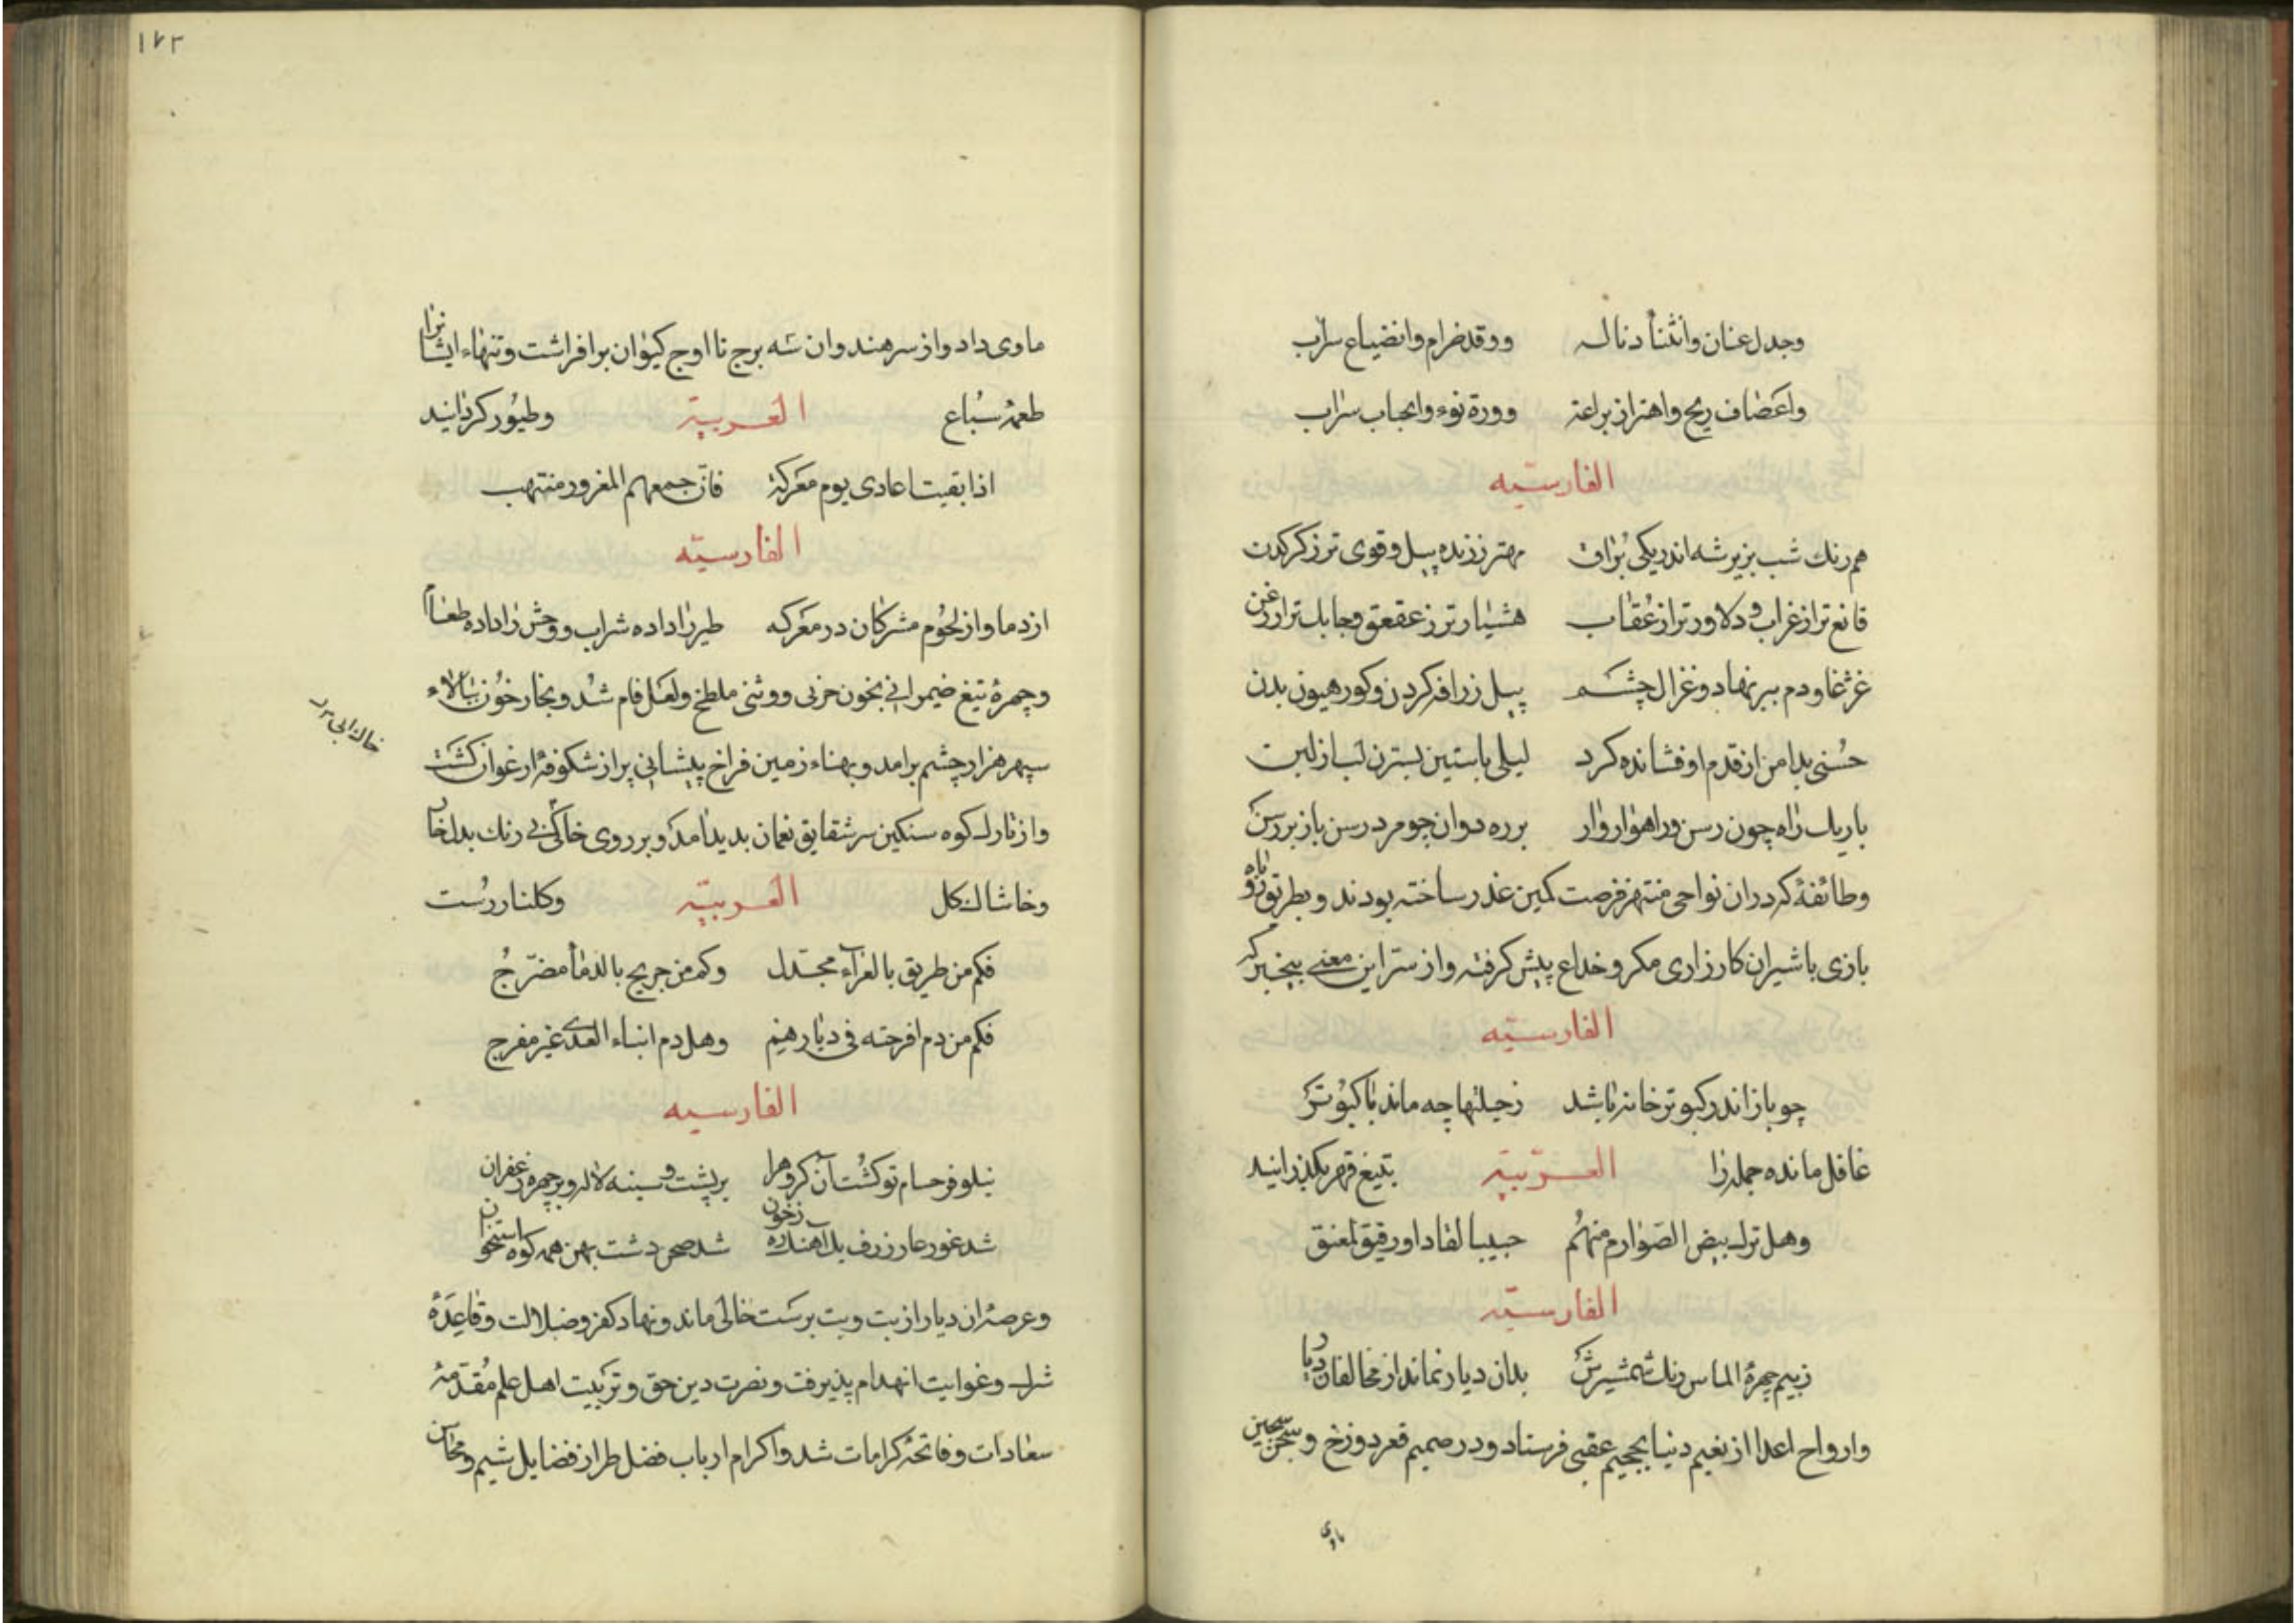 وجدل عنان وانثنا دناله ووقد ضرام وانضياع سراب
واعصاف ريح واهتزاز براعة وورة نوء وانجاب سراب
الفارسيّه
هم رنك شب بزير شه اندر يكى براق مهتر ززنده پيل وقوى تر ز كركدن
قانع تر از غراب و دلاورتر از عُقاب هشيارتر ز عقعق وجابك تر از زغن
غژغاو دم ببر نهاد و غزال چشم پيل زرافه كردن و كور هيون بدن
حُسنى بدامن از قدم او فشانده كرد ليلى باستين بسترن لب از لبن
باريك راه چون رسن و راهوار وار بر ره دوان چو مرد رسن باز بر رسن
وطائفهٔ كه دران نواحى منتهز فرصت كمين غدر ساخته بودند و بطريق روباه
بازى با شيران كارزارى مكر و خداع پيش كرفته و از سر اين معنى بيخبر كه
الفارسيّه
چو باز اندر كبوترخانه باشد ز حيلتها چه ماند با كبوتر
غافل مانده جمله را العربيّة بتيغ قهر بكذرانيد
وهل ترك بيض الصَوارم منهُم حبيبا لقاد اورقيق لمعنق
الفارسيّه
ز بيم چهرهٔ الماس رنك شمشيرش بدان ديار نماند از مخالفان ديّار
وارواح اعدا از نعيم دنيا بجحيم عقبى فرستاد و در صميم قعر دوزخ و سجن سجين
ماوى
١٢٣
ماوى داد و از سر هندوان شه برج تا اوج كيوان برافراشت و تنهاء ايشانرا
طعمهٔ سُباع العربيّة وطيُور كردانيد
اذا بقيت اعادى يوم معركة فان جمعهم المغرور منتهب
الفارسيّه
از دما و از لحُوم مشركان در معركه طير را داده شراب و وحش را داده طعاماً
وچهرهٔ تيغ ضيمرانى بخون حزنى ووثنى ملطخ و لعل فام شُد و بخار خون ببالاء
سپهر هزار چشم برامد و بهناء زمين فراخ پيشانى پر از شكوفهٔ ارغوان كشت
و از تارك كوه سنكين سر شقايق نعمان بديد امد و بر روى خاك بى رنك بدل خار
وخاشاك كل العربيّة وكلنار رُست
فكم من طريق بالعراء مجدّل وكم من جريح بالدماء مضرّجُ
فكم من دم افرحته فى ديارهم وهل دم ابناء العدى غير مفرج
الفارسيه
نيلوفر حسام تو كُشت آن كروه را بر پشت و سينه لاله و بر چهره زعفران
شد غور غار ژرف يك آهنك ره زخون شد صحن دشت پهن همه كوه استخوان
وعرصهٔ ان ديار از بت و بت پرست خالى ماند و نهاد كفر و ضلالت و قاعدهٔ
شرك و غوايت انهدام پذيرفت و نصرت دين حق و تربيت اهل علم مُقدّمهٔ
سعادات و فاتحهٔ كرامات شد و اكرام ارباب فضل طراز فضايل شيم و محاسن